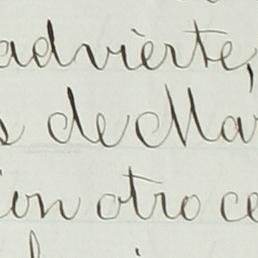 advierte,
s de Mar
ion otro ce